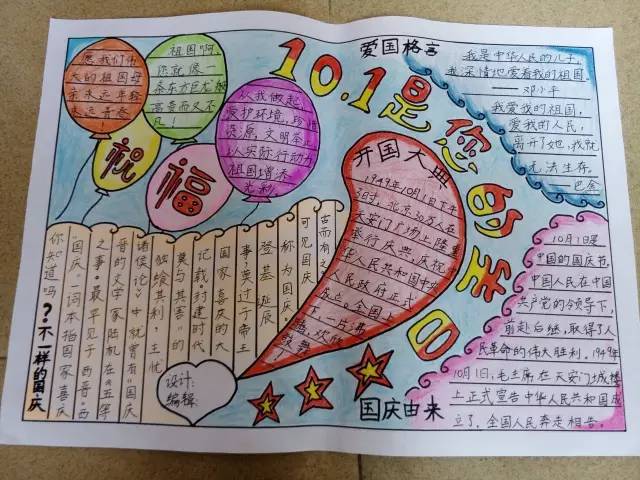 10.1是您的生日
爱国格言
我是中华人民的儿子,
我深情地爱着我的祖国。
——邓小平
我爱我的祖国,
爱我的人民,
离开了她,我就
无法生存。
——巴金
愿我们伟
大的祖国母
亲永远年轻
永远青春
!
祖国啊,
你就像一
条东方巨龙,
高贵而又不
凡!
从我做起,
爱护环境,珍惜
资源,文明等,
以实际行动为
祖国增添
光彩。
祝
福
开国大典
1949年10月1日下午
3时,北京30万人在
天安门广场上隆重
举行庆典,庆祝中
华人民共和国中央
人民政府正式
成立。全国上
下一片沸
腾,欢欣
鼓舞!
10月1日是
中国的国庆节,
中国人民在中国
共产党的领导下,
前赴后继,取得了人
民革命的伟大胜利。1949年
10月1日,毛主席在天安门城楼
上正式宣告中华人民共和国成
立了,全国人民奔走相告。
国庆由来
?·不一样的国庆
你知道吗
“国庆”一词本指国家喜庆
之事,最早见于西晋。西
晋的文学家陆机在《五等
诸侯论》中就曾有“国庆
独飨其利,主忧
莫与其害”的
记载封建时代
国家喜庆的大
事,莫过于帝王
登基诞辰
称为国庆,
可见国庆
古而有之
设计:
编辑: